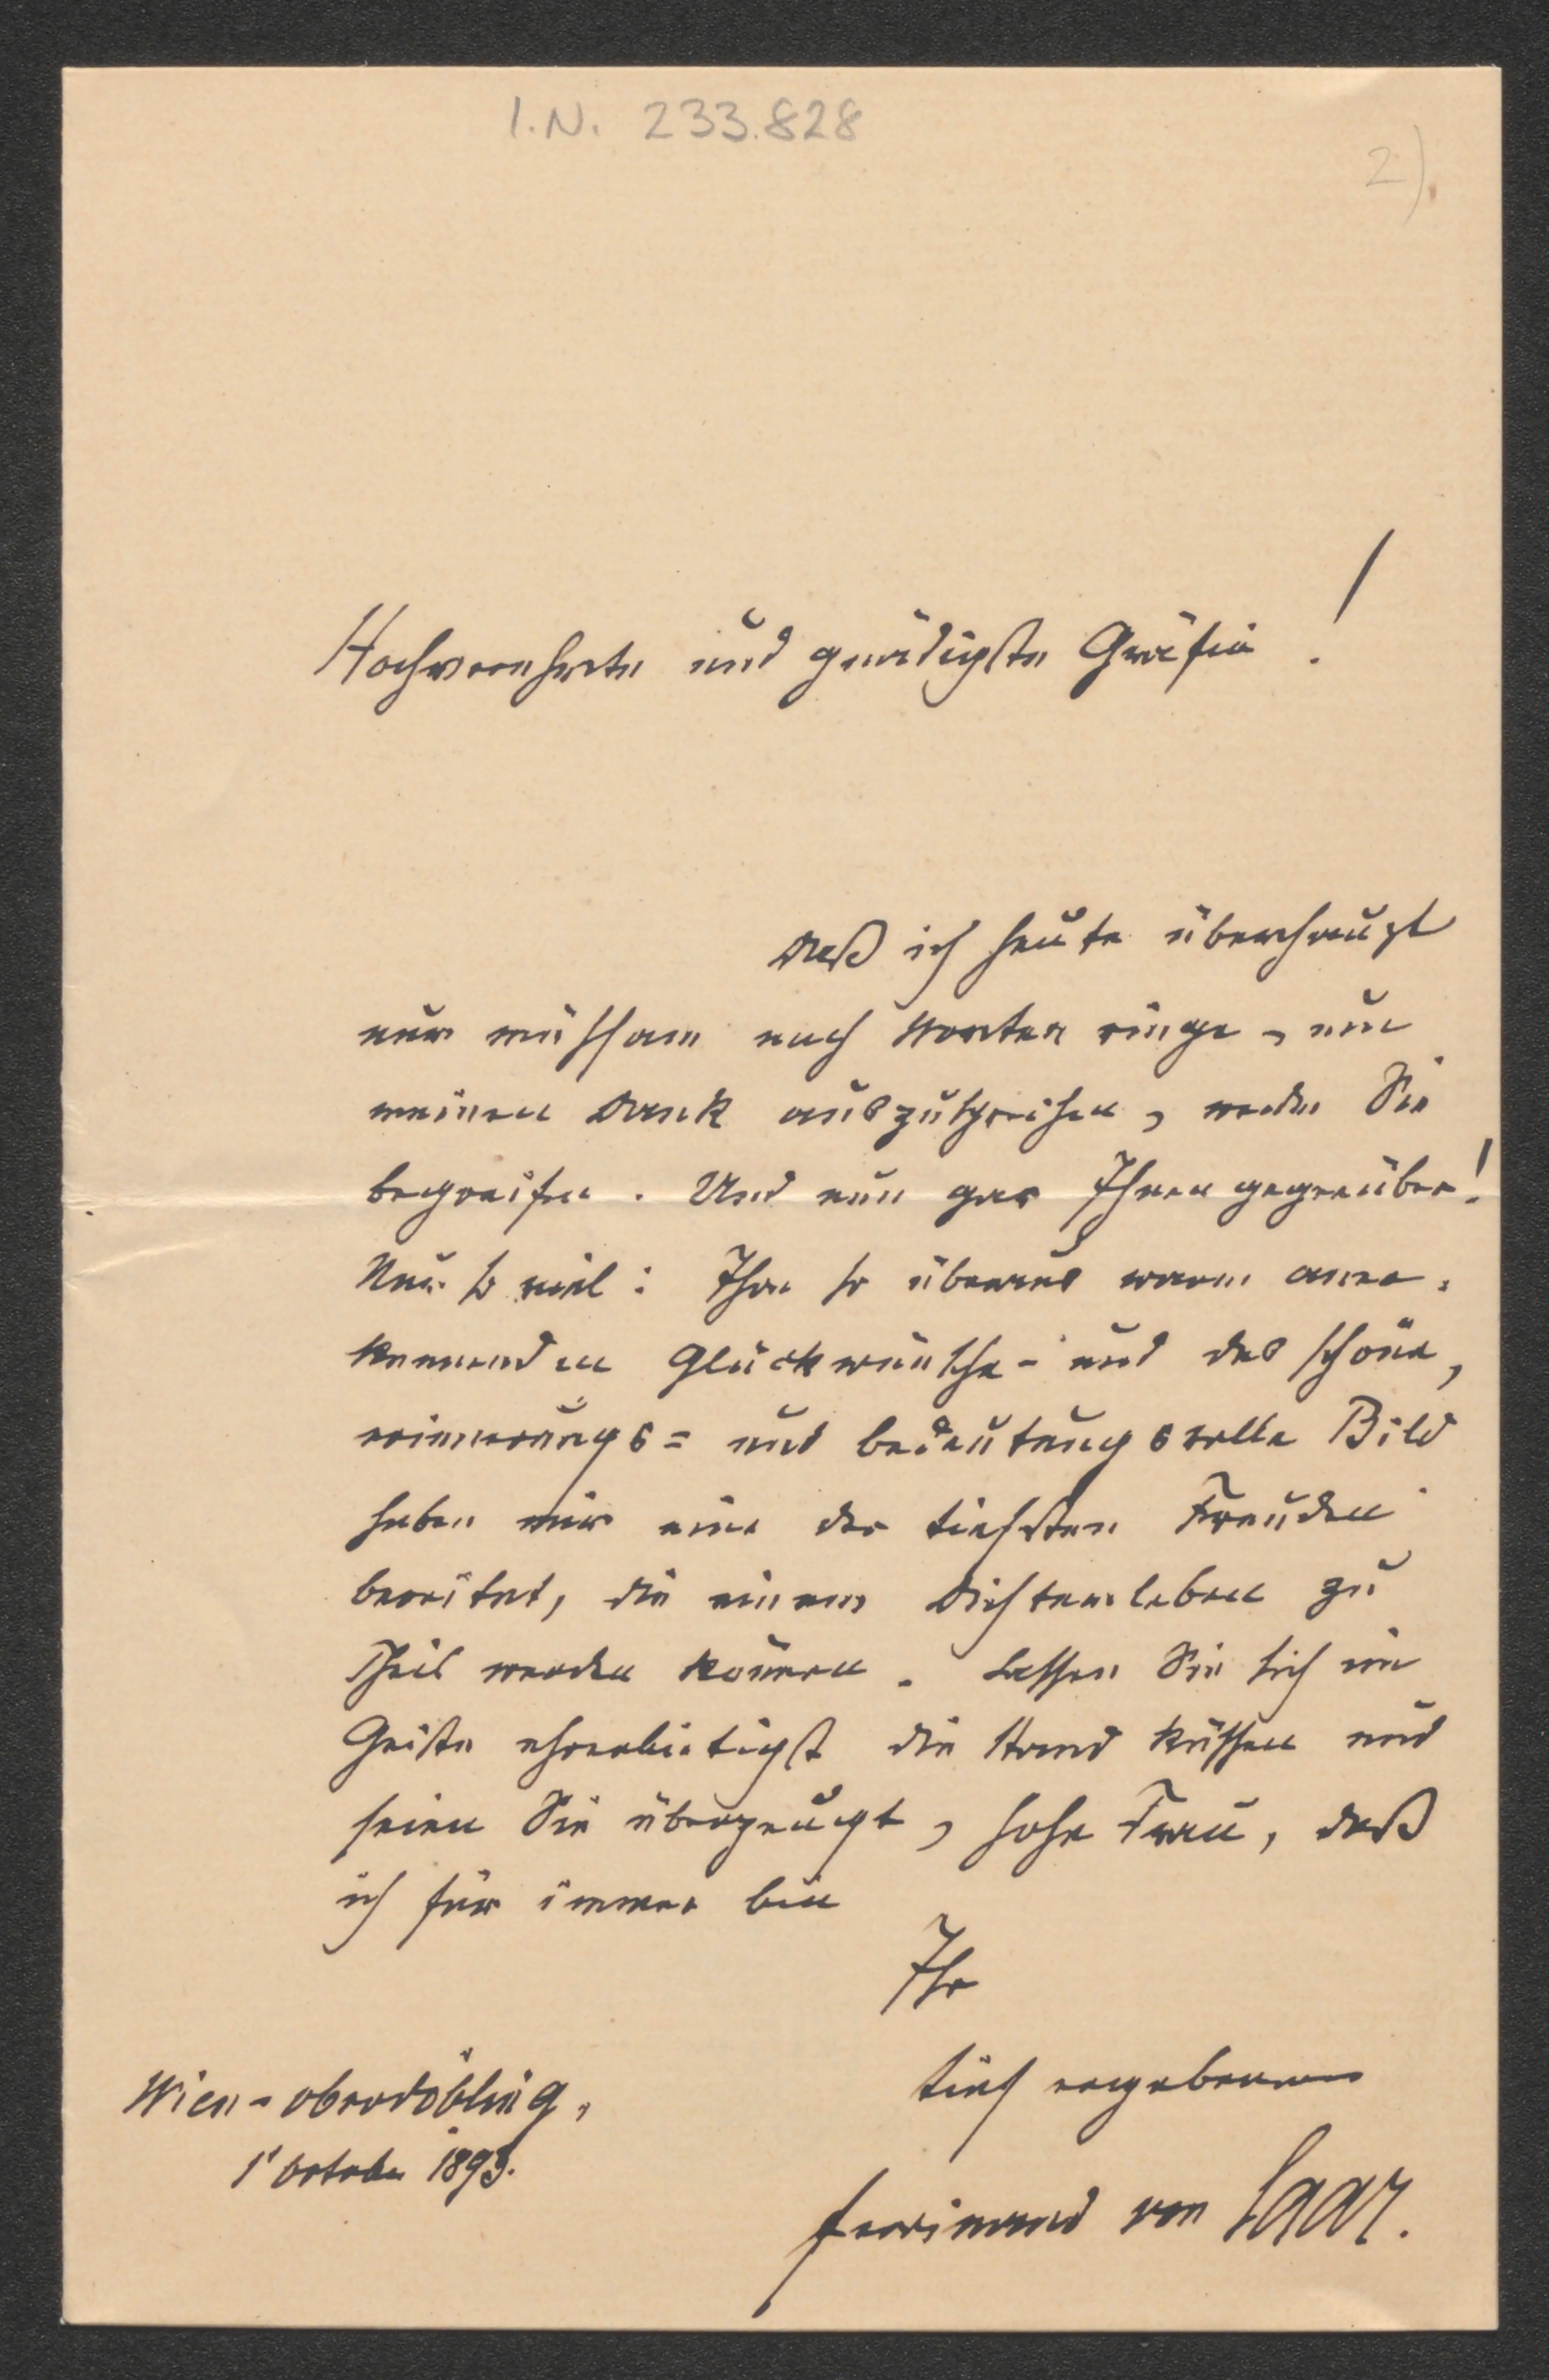 I.N. 233.828
2).
Hochverehrte und gnädigste Gräfin!
Daß ich heute überhaupt
nur mühsam nach Worten ringe, um
meinen Dank auszusprechen, werden Sie
begreifen. Und nun gar Ihnen gegenüber!
Nur so viel: Ihre so überaus warm aner-
kennenden Glückwünsche - und das schöne,
erinnerungs= und bedeutungsvolle Bild
haben mir eine der tiefsten Freuden
bereitet, die einem Dichterleben zu
Theil werden können. Lassen Sie sich im
Geiste ehrerbietigst die Hand küssen und
seien Sie überzeugt, hohe Frau, daß
ich für immer bin
Ihr
tief ergebener
Wien-Oberdöbling,
1' October 1893.
Ferdinand von Saar.